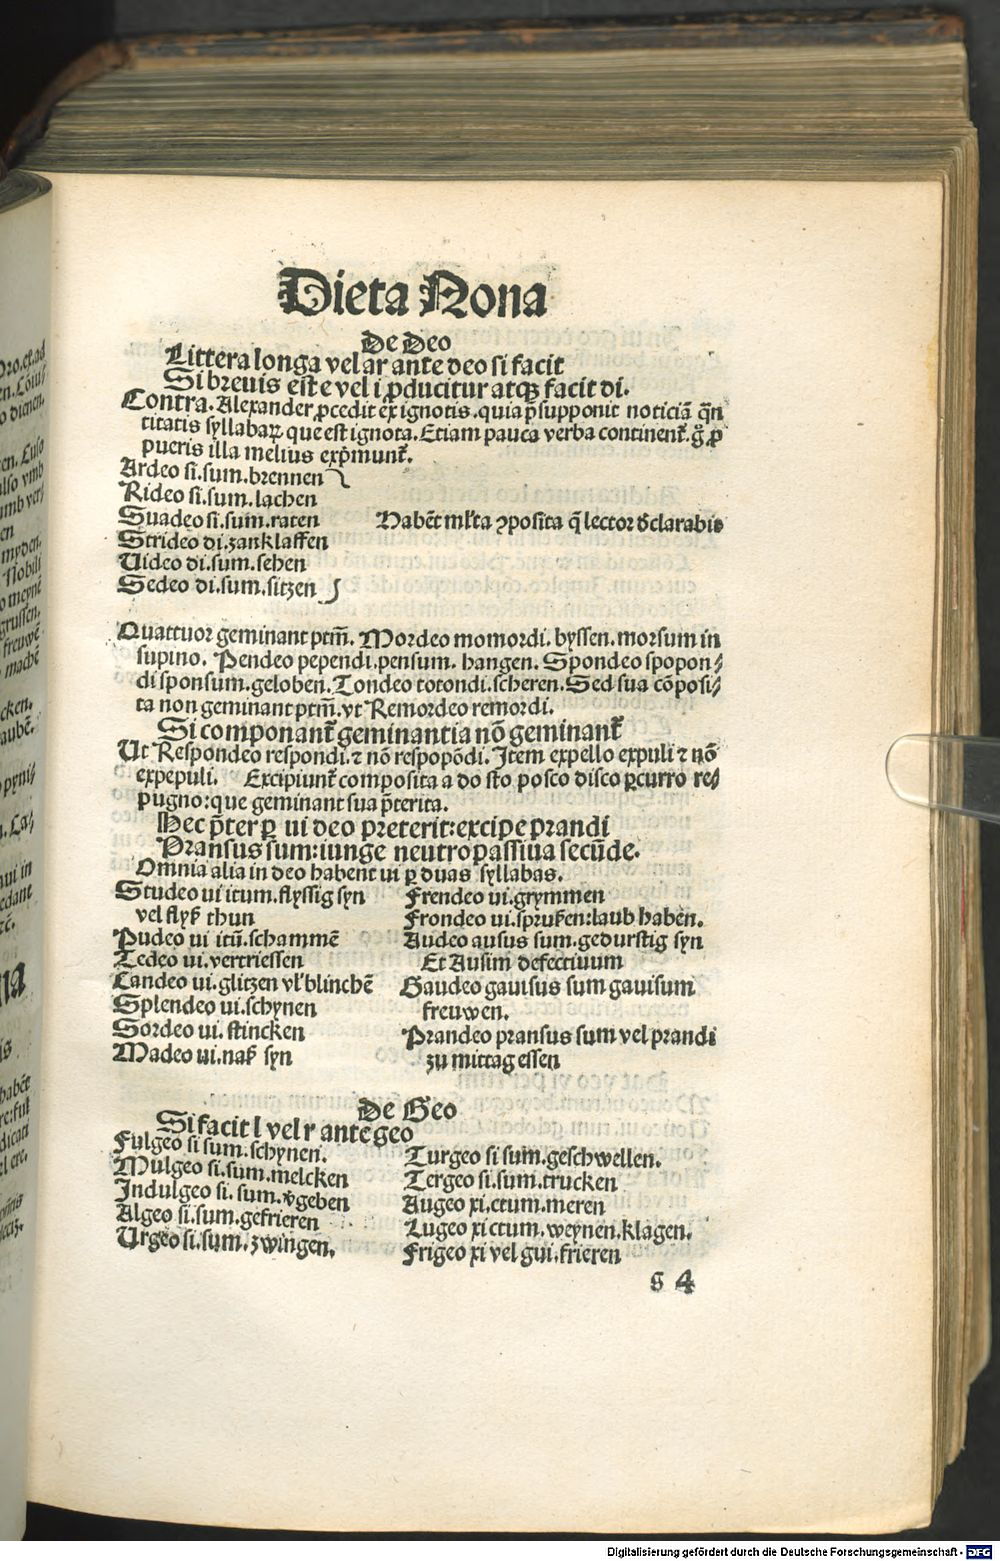 Dieta Nona
De Deo
Littera longa vel ar ante deo si facit
Si breuis est e vel i ꝓducitur atqꝫ facit di.
Contra. Alexander ꝓcedit ex ignotis. quia p̄supponit noticiā q̄n
titatis syllabaꝝ que est ignota. Etiam pauca verba continent̄. g̊ ꝓ
pueris illa melius exp̄munt̄.
Ardeo si. sum. brennen
Rideo si. sum. lachen
Suadeo si. sum. raten
Habēt ml'ta ꝯposita q̄ lector d̄clarabis
Strideo di. zanklaffen
Uideo di. sum. sehen
Sedeo di. sum. sitzen
Quattuor geminant ptm̄. Mordeo momordi. byssen. morsum in
supino. Pendeo pependi. pensum. hangen. Spondeo spopon⸗
di sponsum. geloben. Tondeo totondi. scheren. Sed sua cōposi⸗
ta non geminant ptm̄. vt Remordeo remordi.
Si componant̄ geminantia nō geminant̄
Ut Respondeo respondi. ⁊ nō respopōdi. Item expello expuli ⁊ nō
expepuli. Excipiunt̄ composita a do sto posco disco ꝑcurro re⸗
pugno: que geminant sua p̄terita.
Hec p̄ter ꝑ ui deo preterit: excipe prandi
Pransus sum: iunge neutropassiua secūde.
Omnia alia in deo habent ui ꝑ duas syllabas.
Studeo ui itum. flyssig syn
vel flyß thun
Pudeo ui itū. schammē
Tedeo ui. vertriessen
Candeo ui. glitzen vl' blinchē
Splendeo ui. schynen
Sordeo ui. stincken
Madeo ui. naß syn
Frendeo ui. grymmen
Frondeo ui. sprußen: laub haben.
Audeo ausus sum. gedurstig syn
Et Ausim defectiuum
Gaudeo gauisus sum gauisum
freuwen.
Prandeo pransus sum vel prandi
zu mittag essen
De Geo
Si facit l vel r ante geo
Fulgeo si sum. schynen.
Mulgeo si. sum. melcken
Indulgeo si. sum. v̄geben
Algeo si. sum. gefrieren
Urgeo si. sum. zwingen.
Turgeo si sum. geschwellen.
Tergeo si. sum. trucken
Augeo xi. ctum. meren
Lugeo xi ctum. weynen. klagen.
Frigeo xi vel gui. frieren
g 4
Digitalisierung gefördert durch die Deutsche Forschungsgemeinschaft - DFG